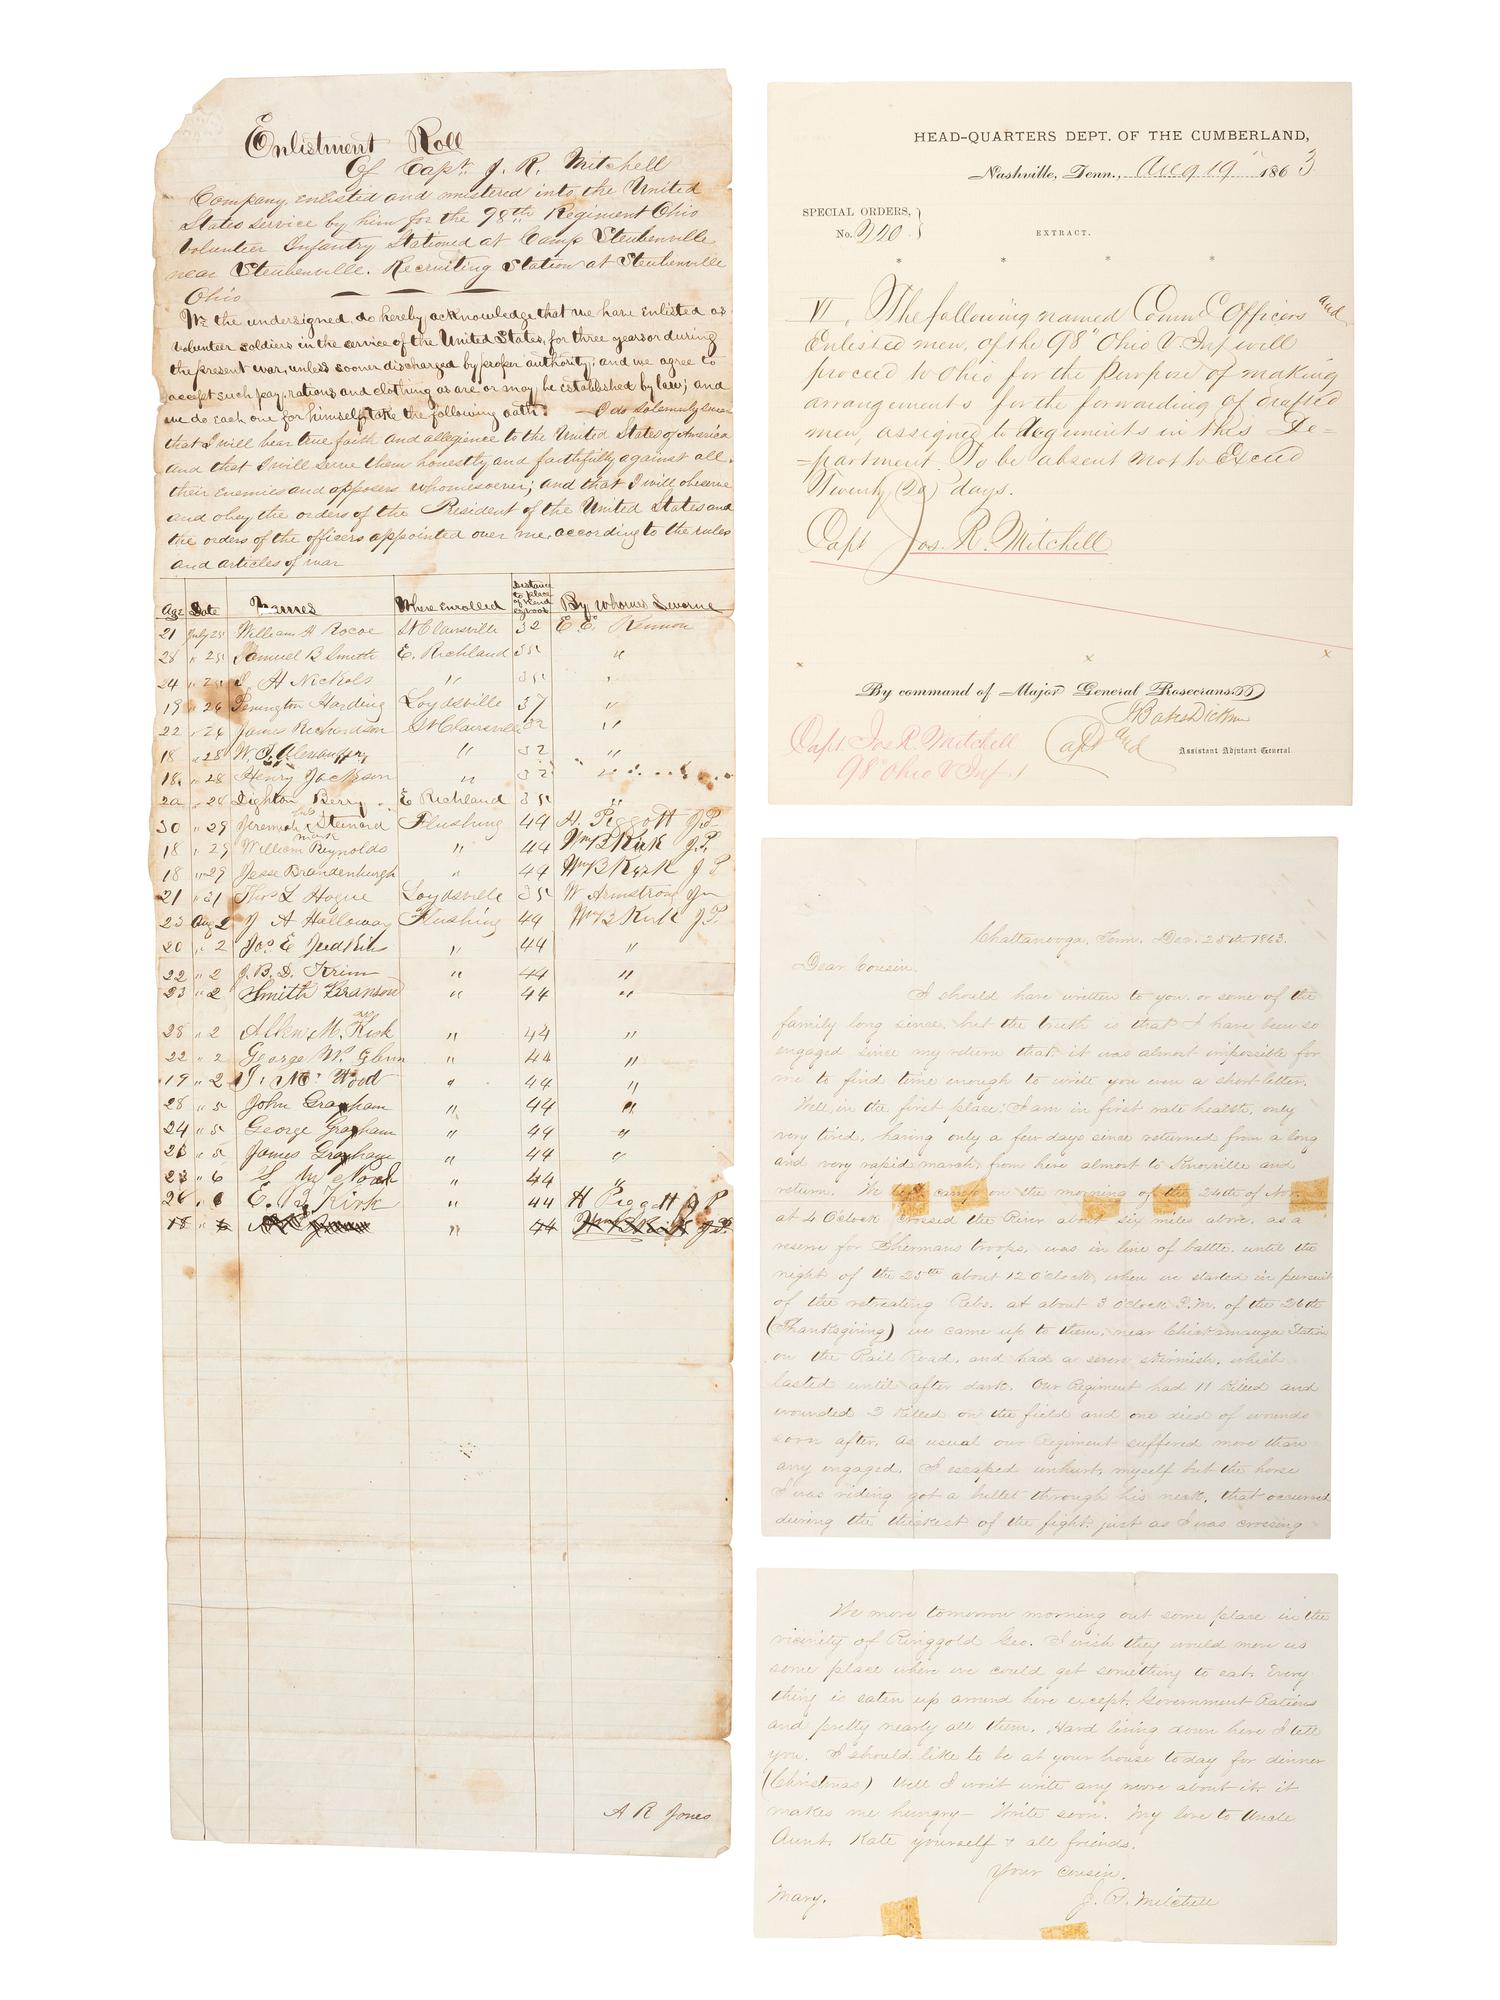 Enlistment Roll
Of Capt. J. R. Mitchell
Company, enlisted and mustered into the United
States service by him for the 98th Regiment Ohio
Volunteer Infantry Stationed at Camp Steubenville
near Steubenville. Recruiting Station at Steubenville
Ohio
We the undersigned, do hereby acknowledge that we have enlisted as
volunteer soldiers in the service of the United States, for three years or during
the present war, unless sooner discharged by proper authority; and we agree to
accept such pay, rations and clothing as are or may be established by law; and
we do each one for himself, take the following oath: I do solemnly swear
that I will bear true faith and allegience to the United States of America
and that I will serve them honestly and faithfully against all
their enemies and opposers whomsoever; and that I will observe
and obey the orders of the President of the United States and
the orders of the officers appointed over me, according to the rules
and articles of war
Age Date Names Where enrolled Distance to place of rendezvous By whome Sworne
21 July 25 William H Rocoe St Clairsville 32 E. E. Kennon
28 " 25 Samuel B Smith E. Richland 35 "
24 " 25 H Nickols " 35 "
19 " 26 Penington Harding Loydsville 37 "
22 " 26 James Richardson St Clairsville 32 "
18 " 28 W. T. Alexander " 32 "
18 " 28 Henry Jackson " 32 "
22 " 28 Dighton Berry E Richland 35 "
30 " 29 Jeremiah his x mark Steward Flushing 44 H. Piggott J.P.
18 " 29 William Reynolds " 44 Wm B Kirk J.P.
18 " 29 Jesse Brandenburgh " 44 Wm B Kirk J P
21 " 31 Thos L Hogue Loydsville 35 W Armstrong
23 Aug 2 J A Halloway Flushing 44 Wm B Kirk J.P.
20 " 2 Jos E Judkins " 44 "
22 " 2 J. B. D. Krim " 44 "
23 " 2 Smith Branson " 44 "
28 " 2 Allen M. Kirk " 44 "
22 " 2 George W. Glenn " 44 "
19 " 2 J. Mc Wood " 44 "
28 " 5 John Graham " 44 "
24 " 5 George Graham " 44 "
26 " 5 James Graham " 44 "
23 " 6 " 44 "
26 " 6 E. R. Kirk " 44 H Piggott J P
18 " 6 " 44
A R Jones
HEAD-QUARTERS DEPT. OF THE CUMBERLAND,
Nashville, Tenn., Aug 19" 1863
SPECIAL ORDERS,
No. 220
EXTRACT.
* * * *
VI, The following named Comm'd Officers and
Enlisted men, of the 98" Ohio V. Inf will
proceed to Ohio for the purpose of making
arrangements for the forwarding of drafted
men, assigned to Regiments in this De=
=partment. To be absent not to Exceed
Twenty (20) days.
Capt Jos. R. Mitchell
x x x
By command of Major General Rosecrans
J Bates Dickson
Capt and Assistant Adjutant General.
Capt Jos R. Mitchell
98" Ohio V Inf.
Chattanooga, Tenn. Dec. 25th 1863.
Dear Cousin.
I should have written to you. or some of the
family long since, but the truth is that I have been so
engaged since my return that it was almost impossible for
me to find time enough to write you even a short letter.
Well, in the first place: I am in first rate health, only
very tired, having only a few days since returned from a long
and very rapid march, from here almost to Knoxville and
return. We left camp on the morning of the 24th of Nov.
at 4 Oclock crossed the River about six miles above, as a
reserve for Shermans troops, was in line of battle, until the
night of the 25th about 12 Oclock, when we started in pursuit
of the retreating Rebs. at about 3 Oclock P.M. of the 26th
(Thanksgiving) we came up to them, near Chickamauga Station
on the Rail Road. and had a severe skirmish, which
lasted until after dark. Our Regiment had 11 killed and
wounded 2 killed on the field and one died of wounds
soon after. As usual our Regiment suffered more than
any engaged. I escaped unhurt, myself but the horse
I was riding got a bullet through his neck. that occurred
during the thickest of the fight. just as I was crossing
We move tomorrow morning out some place in the
vicinity of Ringgold Geo. I wish they would move us
some place where we could get something to eat. Every
thing is eaten up around here except Government Rations
and pretty nearly all them. Hard living down here I tell
you. I should like to be at your house today for dinner
(Christmas) Well I wont write any more about it. it
makes me hungry— Write soon. My love to Uncle
Aunt. Kate yourself + all friends.
Your Cousin.
Mary. J. R. Mitchell